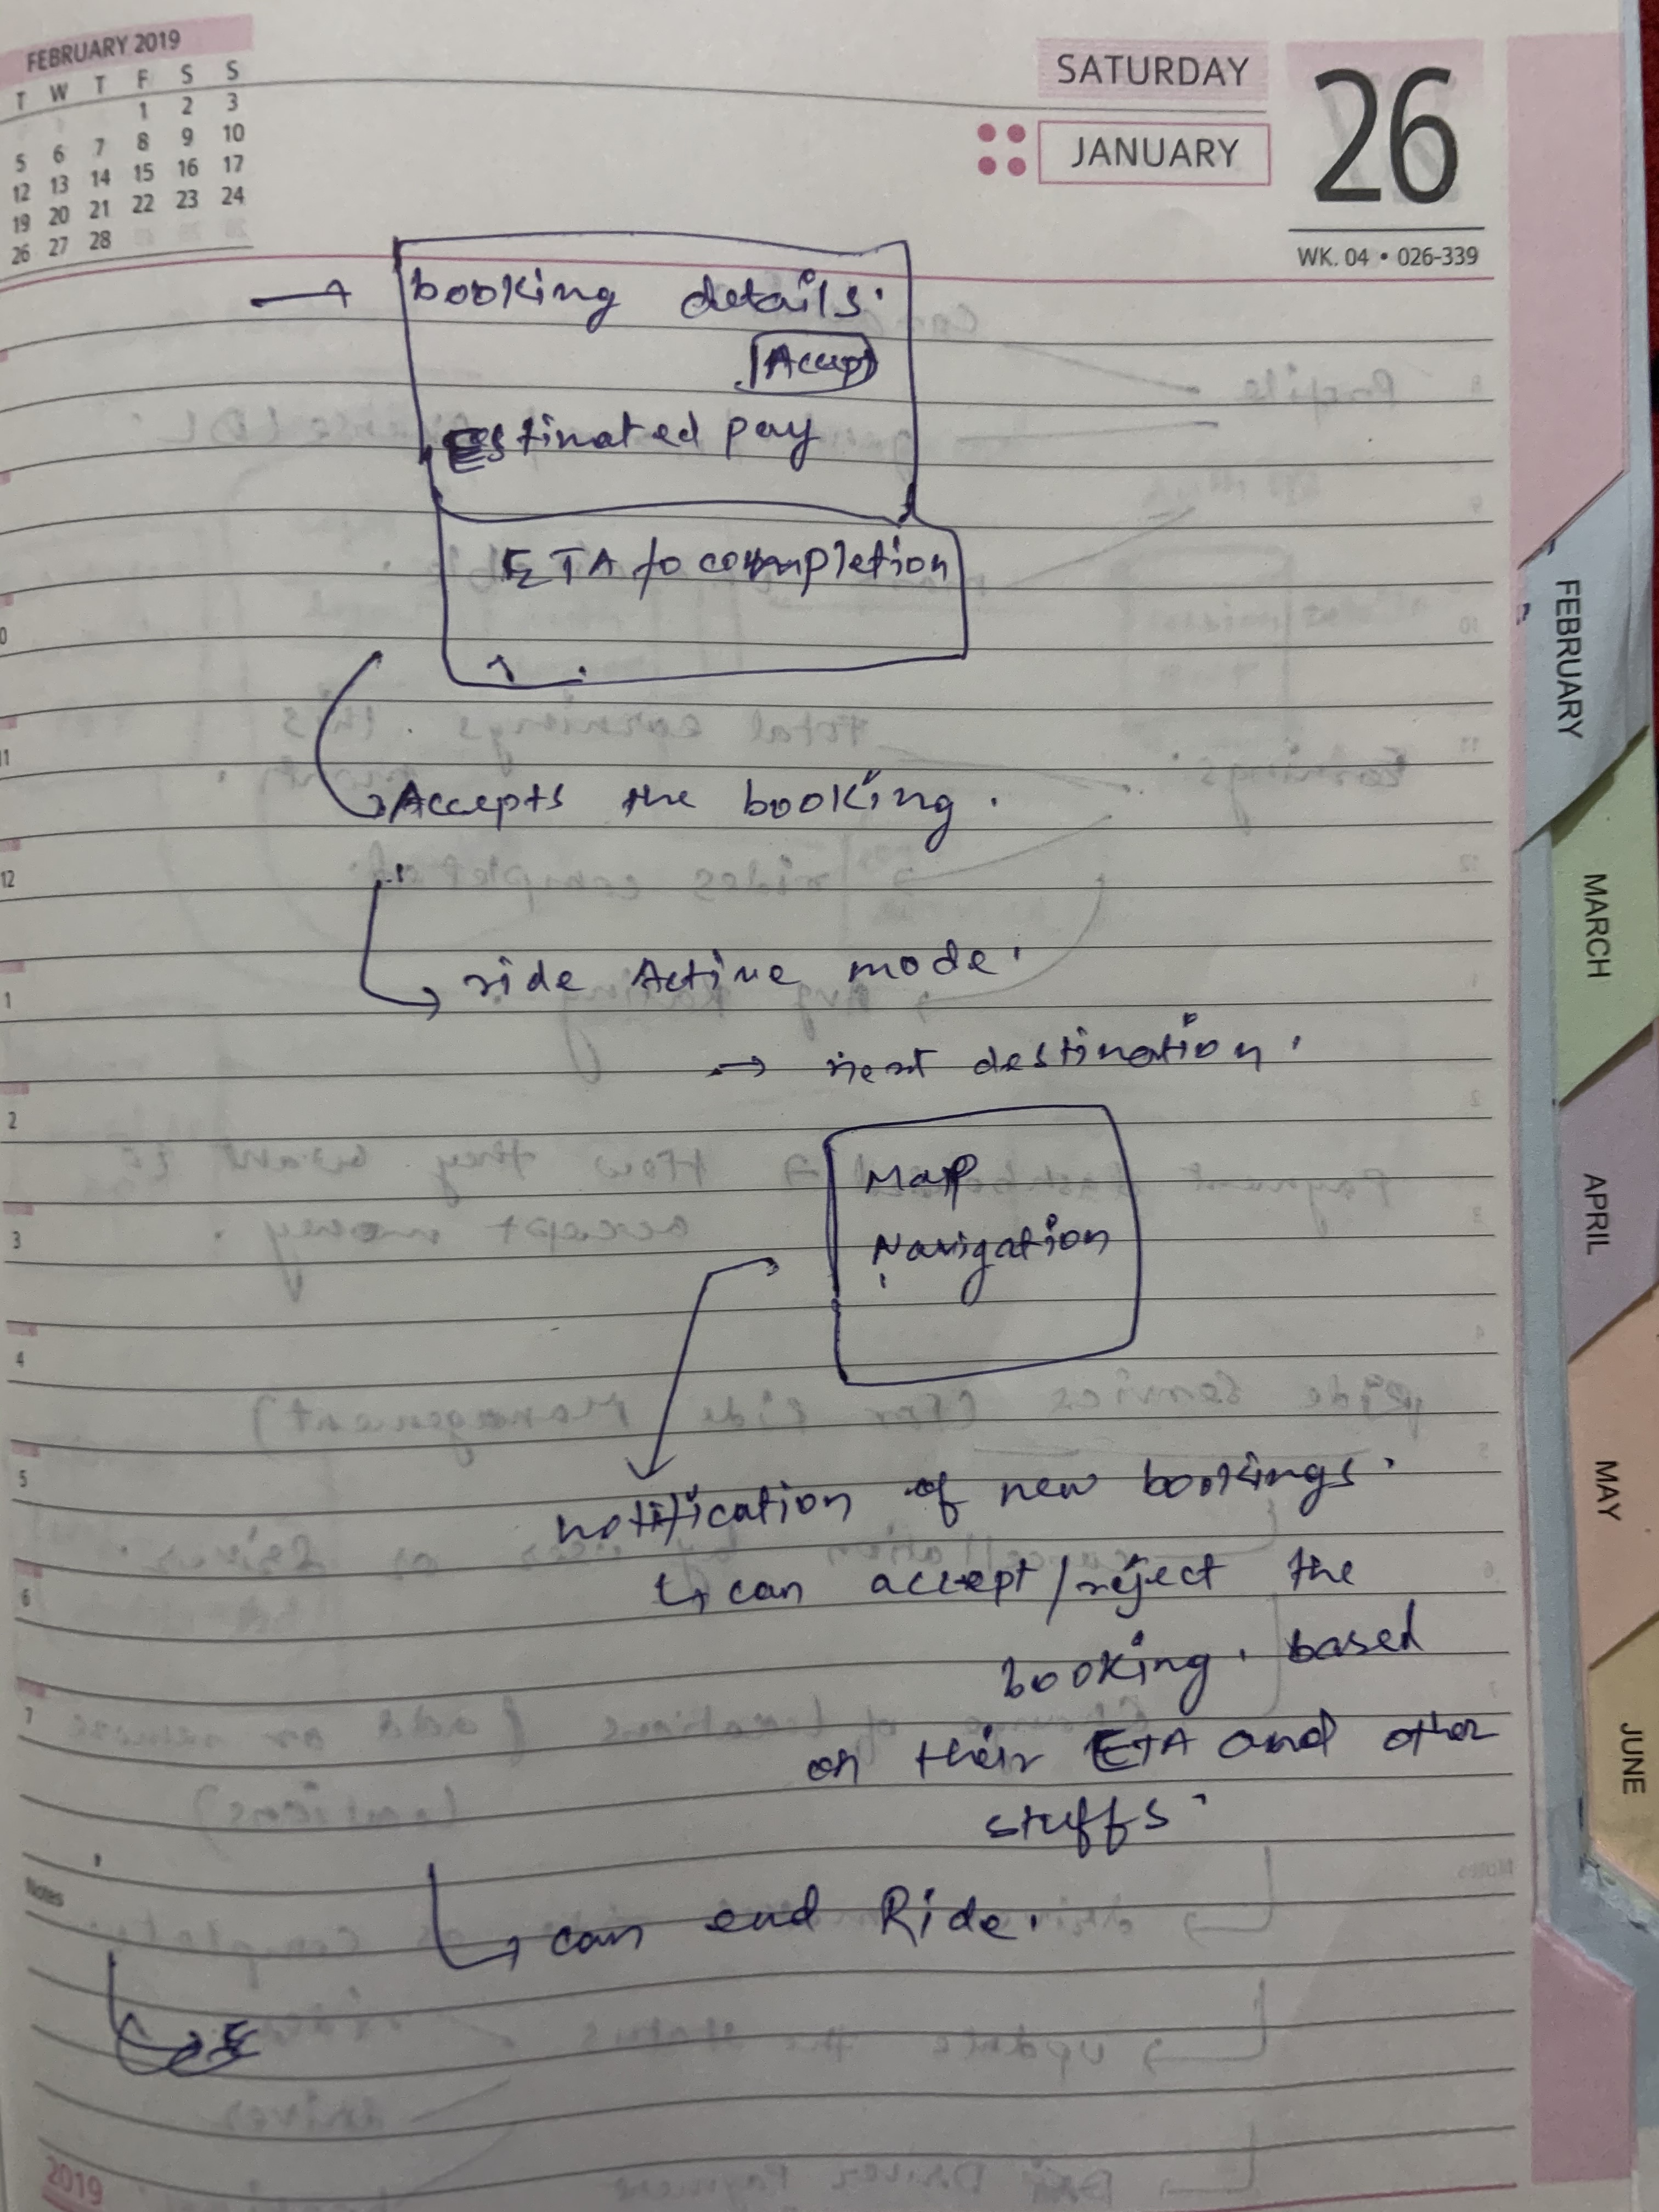 FEBRUARY 2019
T W T F S S
1 2 3
5 6 7 8 9 10
12 13 14 15 16 17
19 20 21 22 23 24
26 27 28
SATURDAY
JANUARY
26
WK. 04 • 026-339
→ booking details.
Accept
Estimated pay
ETA to completion
Accepts the booking.
ride Active mode.
→ next destination.
Map
Navigation
notification of new bookings.
↳ can accept/reject the
booking. based
on their ETA and other
stuffs.
↳ can end Ride.
11
12
1
2
3
4
5
6
7
Notes
2019
FEBRUARY
MARCH
APRIL
MAY
JUNE